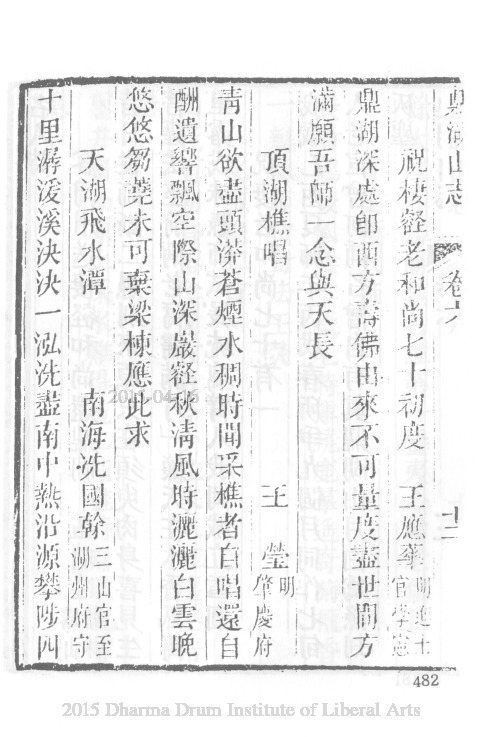 鼎湖山志 卷六 十二
祝棲壑老和尚七十初度 王應華 明進士官學憲
鼎湖深處卽西方壽佛由來不可量度盡世間方
滿願吾師一念與天長
頂湖樵唱 王瑩 明肇慶府
靑山欲盡頭漭蒼煙水稠時聞采樵者自唱還自
酬遺響飄空際山深巖壑秋淸風時灑灑白雲晚
悠悠芻蕘未可棄梁棟應此求
天湖飛水潭 南海冼國幹 三山官至湖州府守
十里潺湲溪決決一泓洗盡南中熱沿源攀陟四
2015-04-
482
2015 Dharma Drum Institute of Liberal Arts